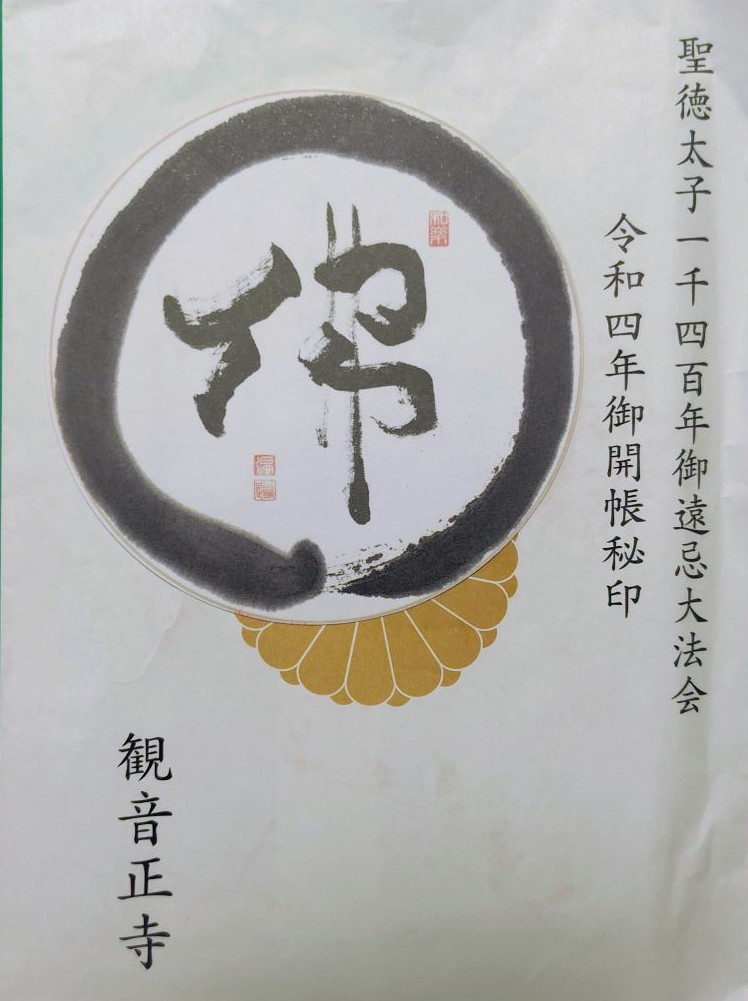 聖徳太子一千四百年御遠忌大法会
令和四年御開帳秘印
観音正寺